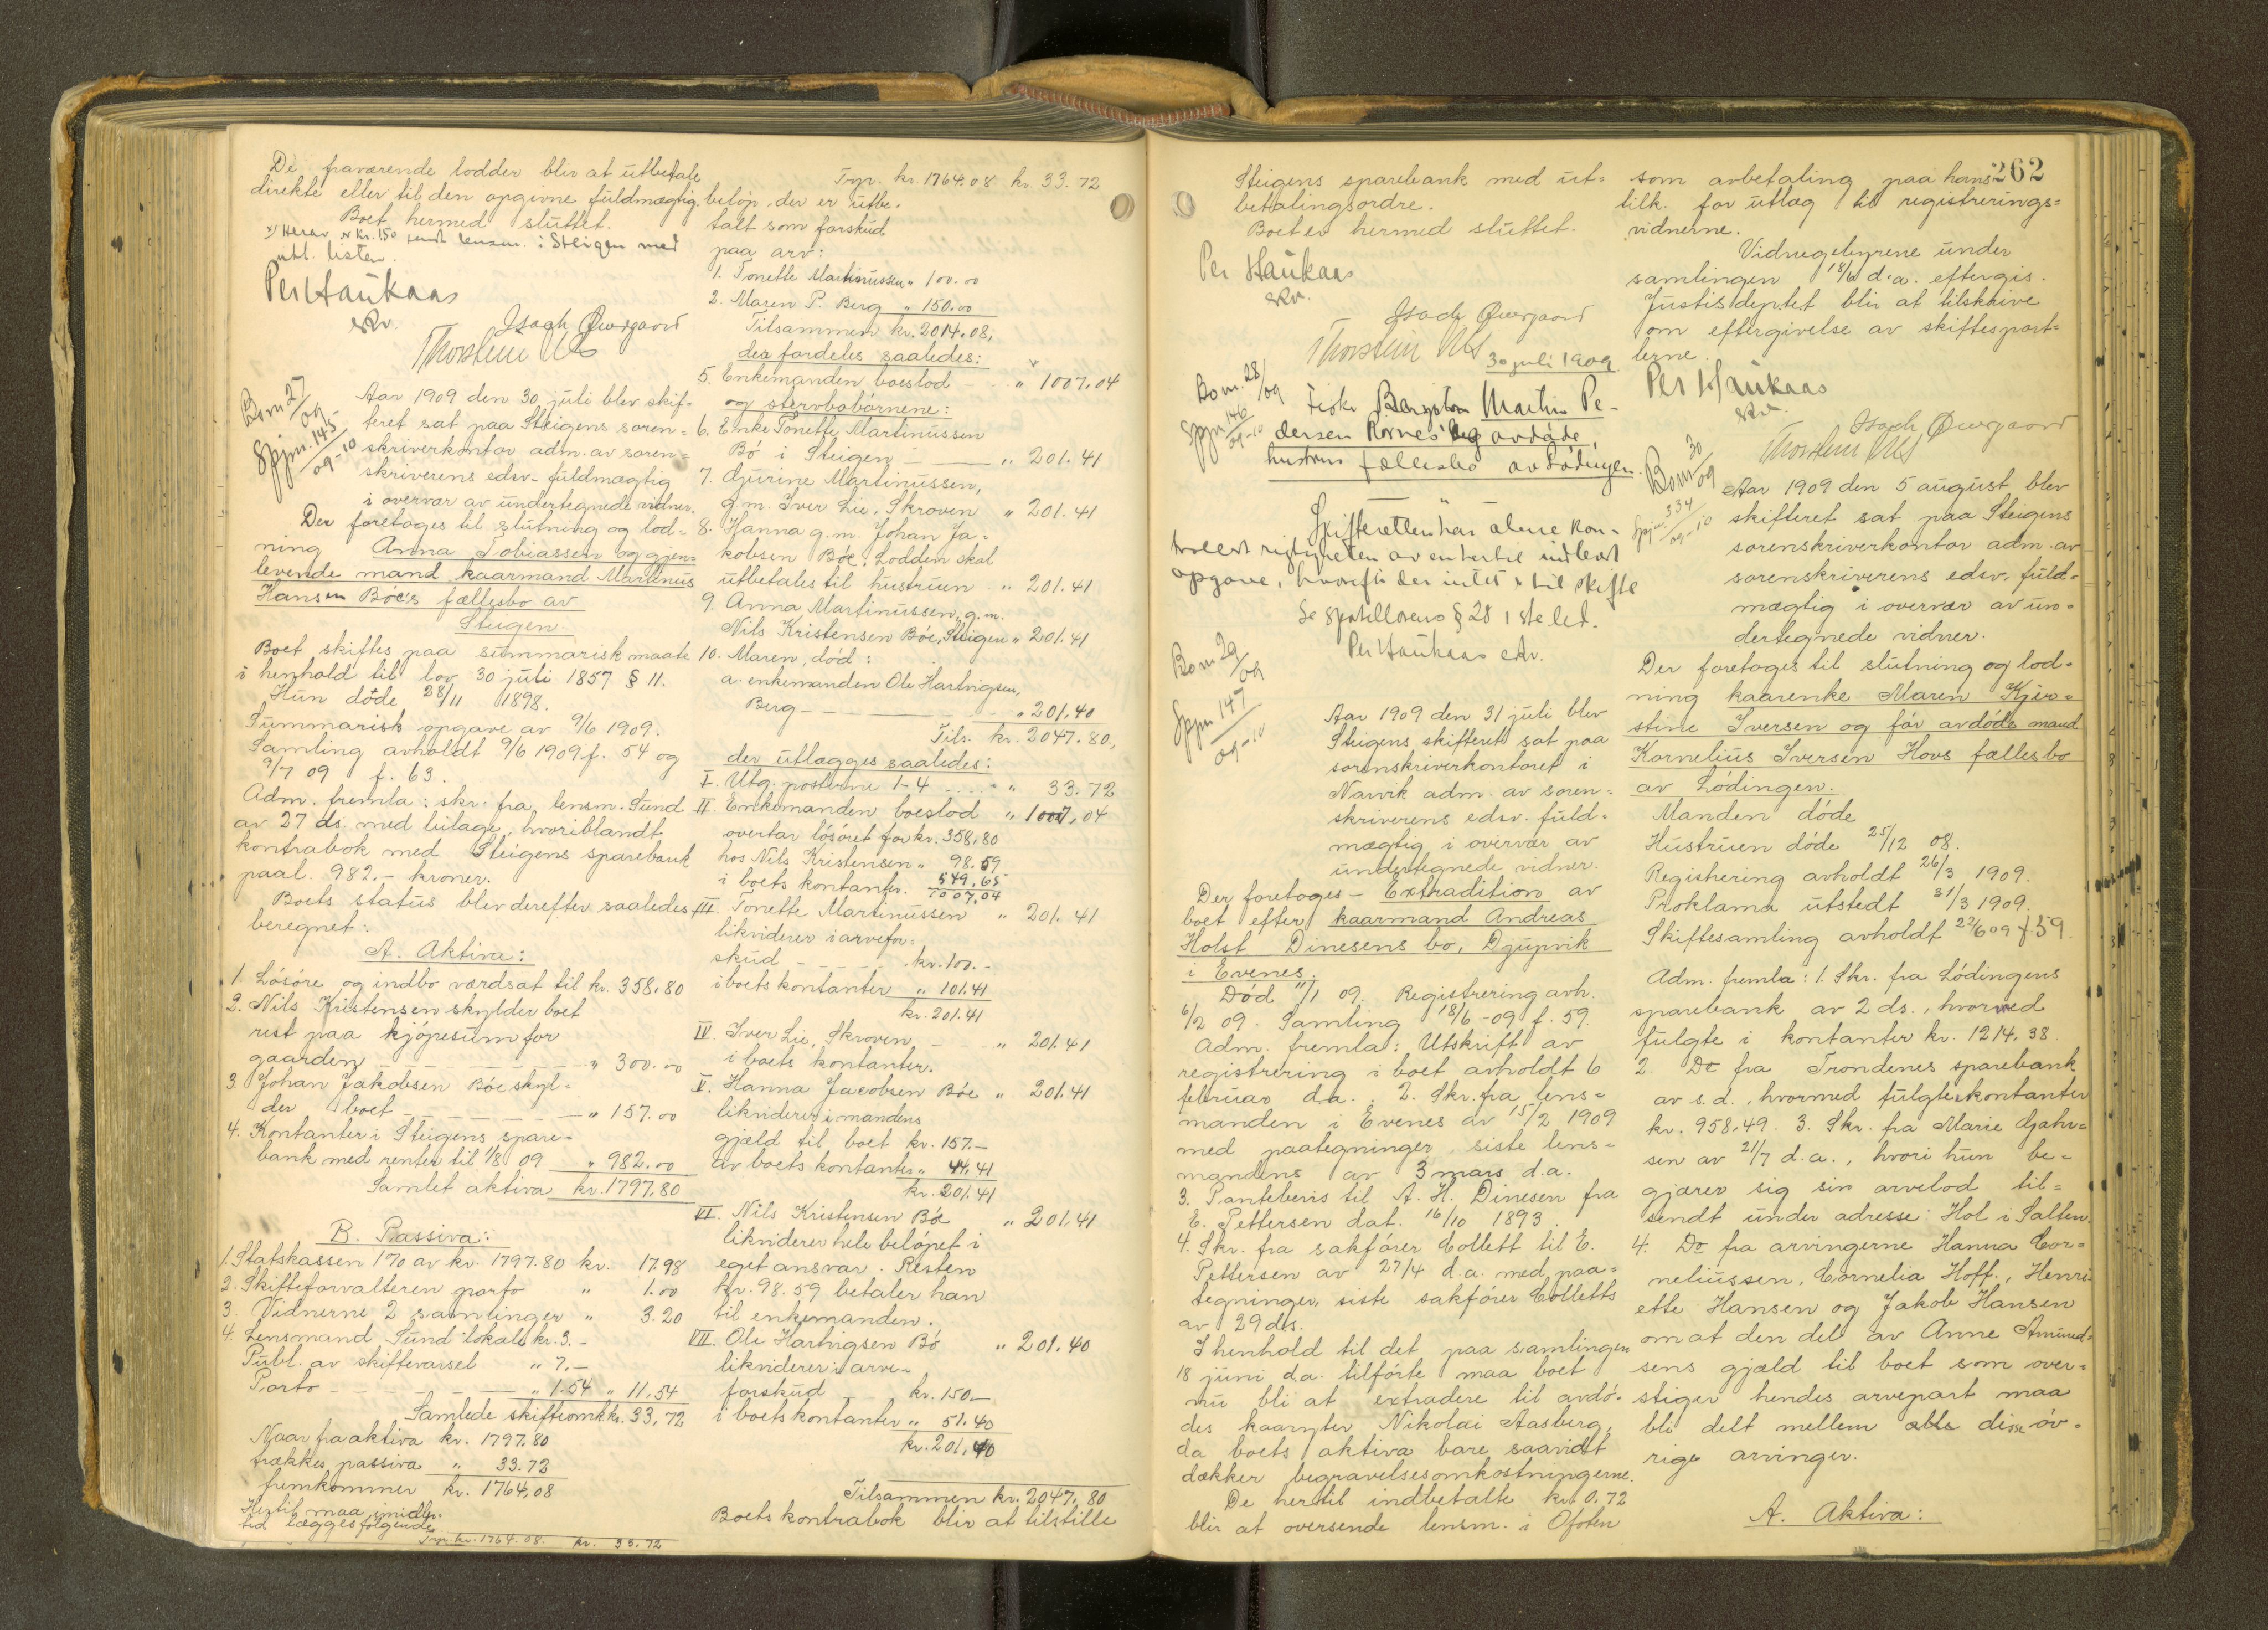 De fraværende lodder blir at utbetale
direkte eller til den opgivne fuldmægtig.
Boet hermed sluttet.
x) Herav kr. 150 sendt lensm. i Steigen med
utbl. listen.
Per Haukaas
skr.
Isach Øvergaard
Thorstein
Bo nr. 27/09
Spjnr. 145/09-10
Aar 1909 den 30 juli blev skif-
teret sat paa Steigens soren-
skriverkontor adm. av soren-
skriverens edsv. fuldmægtig
i overvær av undertegnede vidner.
Der foretoges til slutning og lod-
ning Anna Tobiassen og gjen-
levende mand kaarmand Martinus
Hansen Bøe's fællesbo av
Steigen.
Boet skiftes paa summarisk maate
i henhold til lov 30 juli 1857 § 11.
Hun døde 28/11 1898.
Summarisk opgave av 9/6 1909.
Samling avholdt 9/6 1909 f. 54 og
9/7 09 f. 63.
Adm. fremla: skr. fra lensm. Sund
av 27 ds. med bilage, hvoriblandt
kontrabok med Steigens sparebank
paal. 982.- kroner.
Boets status blev derefter saaledes
beregnet:
A. Aktiva:
1. Løsøre og indbo værdsat til kr. 358.80
2. Nils Kristensen skylder boet
rest paa kjøpesum for
gaarden " 300.00
3. Johan Jakobsen Bøe skyl-
der boet " 157.00
4. Kontanter i Steigens spare-
bank med renter til 1/8 09 " 982.00
Samlet aktiva kr. 1797.80
B. Passiva:
1. Statskassen 1% av kr. 1797.80 kr. 17.98
2. Skifteforvalteren porto " 1.00
3. Vidnerne 2 samlinger " 3.20
4. Lensmand Sund lokale kr. 3.-
Publ. av skiftevarsel " 7.-
Porto " 1.54 " 11.54
Samlede skifteomk. kr. 33,72
Naar fra aktiva kr. 1797.80
trækkes passiva " 33.72
fremkommer kr. 1764,08
Hertil maa imidler-
tid lægges følgende
Trp. kr. 1764.08. kr. 33.72
Trp. kr. 1764.08 kr. 33.72
beløp, der er utbe-
talt som forskud
paa arv:
1. Tonette Martinussen " 100.00
2. Maren P. Berg " 150.00
Tilsammen kr. 2014.08,
der fordeles saaledes:
5. Enkemanden boeslod " 1007.04
og stervbobørnene:
6. Enke Tonette Martinussen
Bø i Steigen " 201.41
7. Gjurine Martinussen,
g.m. Iver Lie, Skroven " 201.41
8. Hanna g.m. Johan Ja-
kobsen Bøe. Lodden skal
utbetales til hustruen " 201.41
9. Anna Martinussen, g.m.
Nils Kristensen Bøe, Steigen " 201.41
10. Maren, død:
a. enkemanden Ole Hartvigsen,
Berg " 201.40
Tils. kr. 2047.80,
der utlægges saaledes:
I. Utg. posterne 1-4 " 33.72
II. Enkemanden boeslod " 1007,04
overtar løsøret for kr. 358.80
hos Nils Kristensen " 98.59
i boets kontanter 549.65
1007.04
III. Tonette Martinussen " 201.41
likviderer i arvefor-
skud kr. 100.-
i boets kontanter " 101.41
kr. 201.41
IV. Iver Lie, Skroven " 201.41
i boets kontanter.
V. Hanna Jacobsen Bøe " 201.41
likviderer i mandens
gjæld til boet kr. 157.-
av boets kontanter " 44.41
kr. 201.41
VI. Nils Kristensen Bø " 201.41
likviderer hele beløpet i
eget ansvar. Resten
kr. 98.59 betaler han
til enkemanden.
VII. Ole Hartvigsen Bø " 201.40
likviderer i arve-
forskud kr. 150.-
i boets kontanter " 51.40
kr. 201.40
Tilsammen kr. 2047.80
Boets kontrabok blir at tilstille
Steigens sparebank med ut-
betalingsordre.
Boet er hermed sluttet.
Per Haukaas
skr.
Isach Øvergaard
Thorstein
30 juli 1909
Bo nr. 28/09
Spjnr 146/09-10
Martin Pe-
dersen Rornes og avdøde
hustrus fællesbo av Lødingen
Skifteretten har alene kon-
trollert rigtigheten av en hertil indlevert
opgave, hvorefter der intet er til skifte
Se sportellovens § 28 1ste led.
Per Haukaas skr.
Bo nr 29/09
Spjnr 147/09-10
Aar 1909 den 31 juli blev
Steigens skifteret sat paa
sorenskriverkontoret i
Narvik adm. av soren-
skriverens edsv. fuld-
mægtig i overvær av
undertegnede vidner.
Der foretoges - Extradition av
boet efter kaarmand Andreas
Holst Dinesens bo, Djupvik
i Evenes.
Død 11/1 09. Registrering avh.
6/2 09. Samling 18/6 -09 f. 59.
Adm. fremla: Utskrift av
registrering i boet avholdt 6
februar d.a. 2. Skr. fra lens-
manden i Evenes av 15/2 1909
med paategninger, siste lens-
mandens av 3 mars d.a.
3. Pantebevis til A. H. Dinesen fra
E. Pettersen dat. 16/10 1893.
4. Skr. fra sakfører Collett til E.
Pettersen av 27/4 d.a. med paa-
tegninger, siste sakfører Colletts
av 29 ds.
I henhold til det paa samlingen
18 juni d.a. tilførte maa boet
nu bli at extradere til avdø-
des kaaryter Nikolai Aasberg,
da boets aktiva bare saavidt
dækker begravelsesomkostningerne.
De hertil indbetalte kr. 0.72
blir at oversende lensm. i Ofoten
262
som avbetaling paa hans
tilk. for utlæg til registrerings-
vidnerne.
Vidnegebyrene under
samlingen 18/6 d.a. eftergis.
Justisdeptet blir at tilskrive
om eftergivelse av skiftesport-
lerne.
Per Haukaas
skr.
Isach Øvergaard
Thorstein
Bo nr 30/09
Spjnr. 334/09-10
Aar 1909 den 5 august blev
skifteret sat paa Steigens
sorenskriverkontor adm. av
sorenskriverens edsv. fuld-
mægtig i overvær av un-
dertegnede vidner.
Der foretoges til slutning og lod-
ning kaarenke Maren Kjer-
stine Iversen og før avdøde mand
Kornelius Iversen Hovs fællesbo
av Lødingen.
Manden døde
Hustruen døde 25/12 08.
Registrering avholdt 26/3 1909.
Proklama utstedt 31/3 1909.
Skiftesamling avholdt 22/6 09 f. 59.
Adm. fremla: 1. Skr. fra Lødingens
sparebank av 2 ds., hvorved
fulgte i kontanter kr. 1214.38.
2. Do fra Trondenes sparebank
av s.d., hvormed fulgte kontanter
kr. 958.49. 3. Skr. fra Marie Gjahr-
sen av 21/7 d.a., hvori hun be-
gjærer sig sin arvelod til-
sendt under adresse Hol i Salten.
4. Do fra arvingerne Hanna Cor-
neliussen, Cornelia Hoff, Henri-
ette Hansen og Jakob Hansen
om at den del av Anne Amund-
sens gjæld til boet som over-
stiger hendes arvepart maa
bli delt mellem alle disse øv-
rige arvinger.
A. Aktiva: